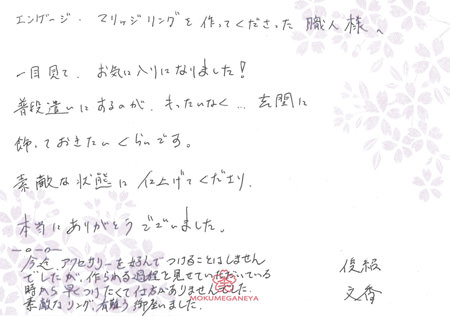 エンゲージ・マリッジリングを作ってくださった職人様へ
一目見て、お気に入りになりました!
普段遣いにするのが、もったいなく… 玄関に
飾っておきたいくらいです。
素敵な状態に仕上げてくださり、
本当にありがとうございました。
今迄、アクセサリーを好んでつけることはしません
でしたが、作られる過程を見せていただいている
時から早くつけたくて仕方がありませんでした。
素敵なリング、有難う御座いました。
文香
MOKUMEGANEYA